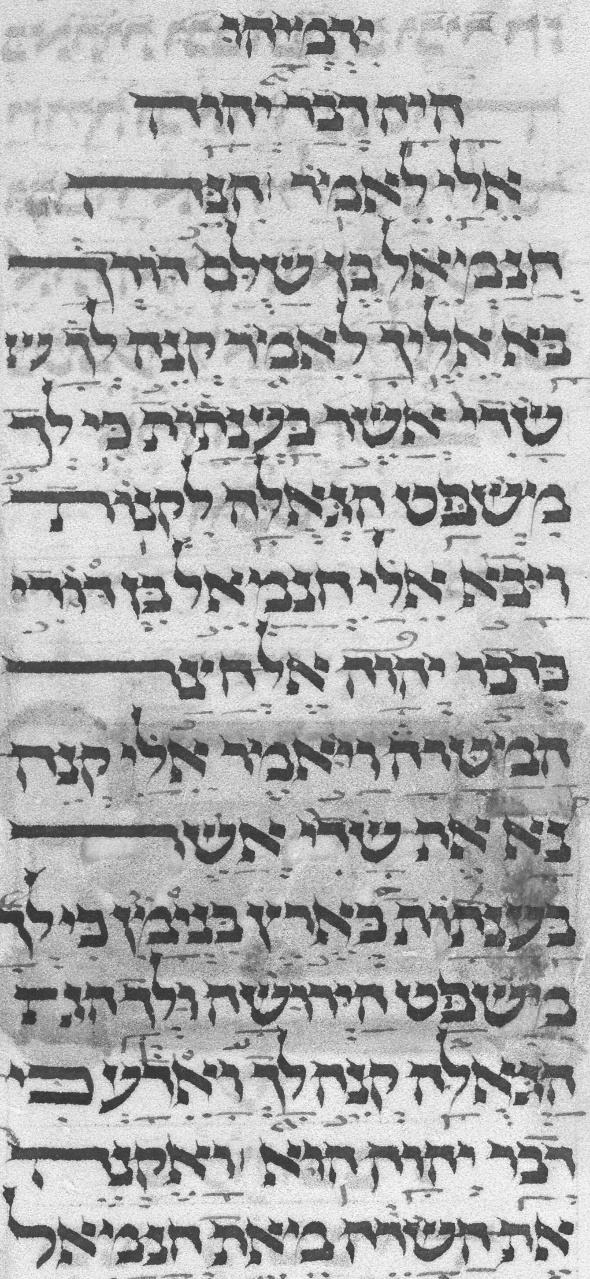 ירמיהו
היה דבר יהוה
אלי לאמר הנה
חנמאל בן שלם דודך
בא אליך לאמר קנה לך ש
שדי אשר בענתות כי לך
משפט הגאלה לקנות
ויבא אלי חנמאל בן דודי
כדבר יהוה אל חצר
המטרה ויאמר אלי קנה
נא את שדי אשר
בענתות בארץ בנימן כי לך
משפט הירושה ולך
הגאלה קנה לך ואדע כי
דבר יהוה הוא ואקנה
את השדה מאת חנמאל